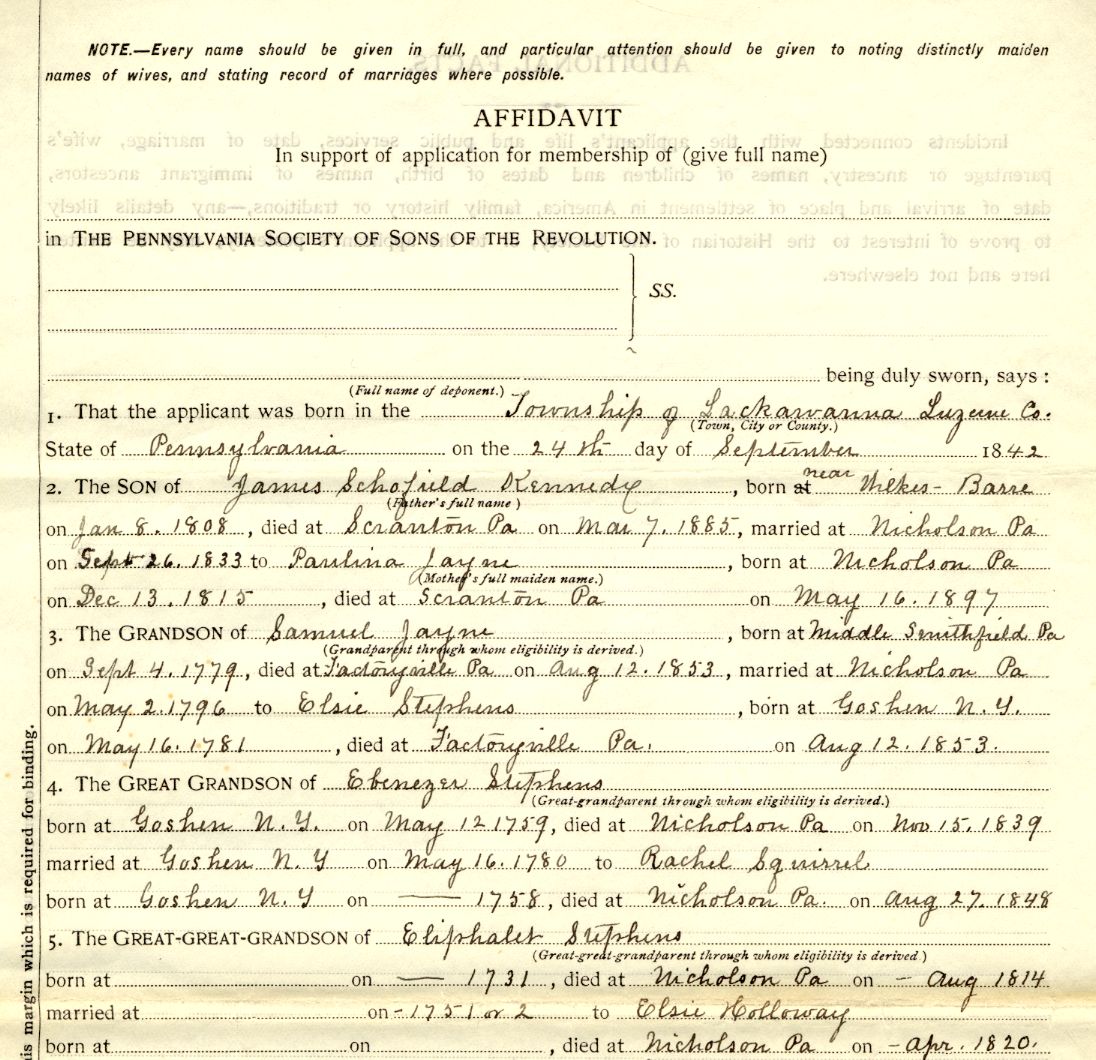 NOTE.—Every name should be given in full, and particular attention should be given to noting distinctly maiden
names of wives, and stating record of marriages where possible.
AFFIDAVIT
In support of application for membership of (give full name)
in THE PENNSYLVANIA SOCIETY OF SONS OF THE REVOLUTION.
SS.
being duly sworn, says :
(Full name of deponent.)
1. That the applicant was born in the Township of Lackawanna Luzerne Co.
(Town, City or County.)
State of Pennsylvania on the 24th day of September 1842
2. The SON of James Schofield Kennedy, born at near Wilkes-Barre
(Father's full name)
on Jan 8. 1808, died at Scranton Pa on Mar 7. 1885, married at Nicholson Pa
on Sept 26. 1833 to Paulina Jayne, born at Nicholson Pa
(Mother's full maiden name.)
on Dec 13. 1815, died at Scranton Pa on May 16. 1897
3. The GRANDSON of Samuel Jayne, born at Middle Smithfield Pa
(Grandparent through whom eligibility is derived.)
on Sept 4. 1779, died at Factoryville Pa on Aug 12. 1853, married at Nicholson Pa
on May 2. 1796 to Elsie Stephens, born at Goshen N.Y.
on May 16. 1781, died at Factoryville Pa. on Aug 12. 1853.
4. The GREAT GRANDSON of Ebenezer Stephens
(Great-grandparent through whom eligibility is derived.)
born at Goshen N.Y. on May 12 1759, died at Nicholson Pa on Nov 15. 1839
married at Goshen N.Y on May 16. 1780 to Rachel Squirrel
born at Goshen N.Y on — 1758, died at Nicholson Pa. on Aug 27. 1848
5. The GREAT-GREAT-GRANDSON of Eliphalet Stephens
(Great-great-grandparent through whom eligibility is derived.)
born at on — 1731, died at Nicholson Pa on - Aug 1814
married at on - 1751 or 2 to Elsie Holloway
born at on , died at Nicholson Pa on - Apr. 1820.
is margin which is required for binding.